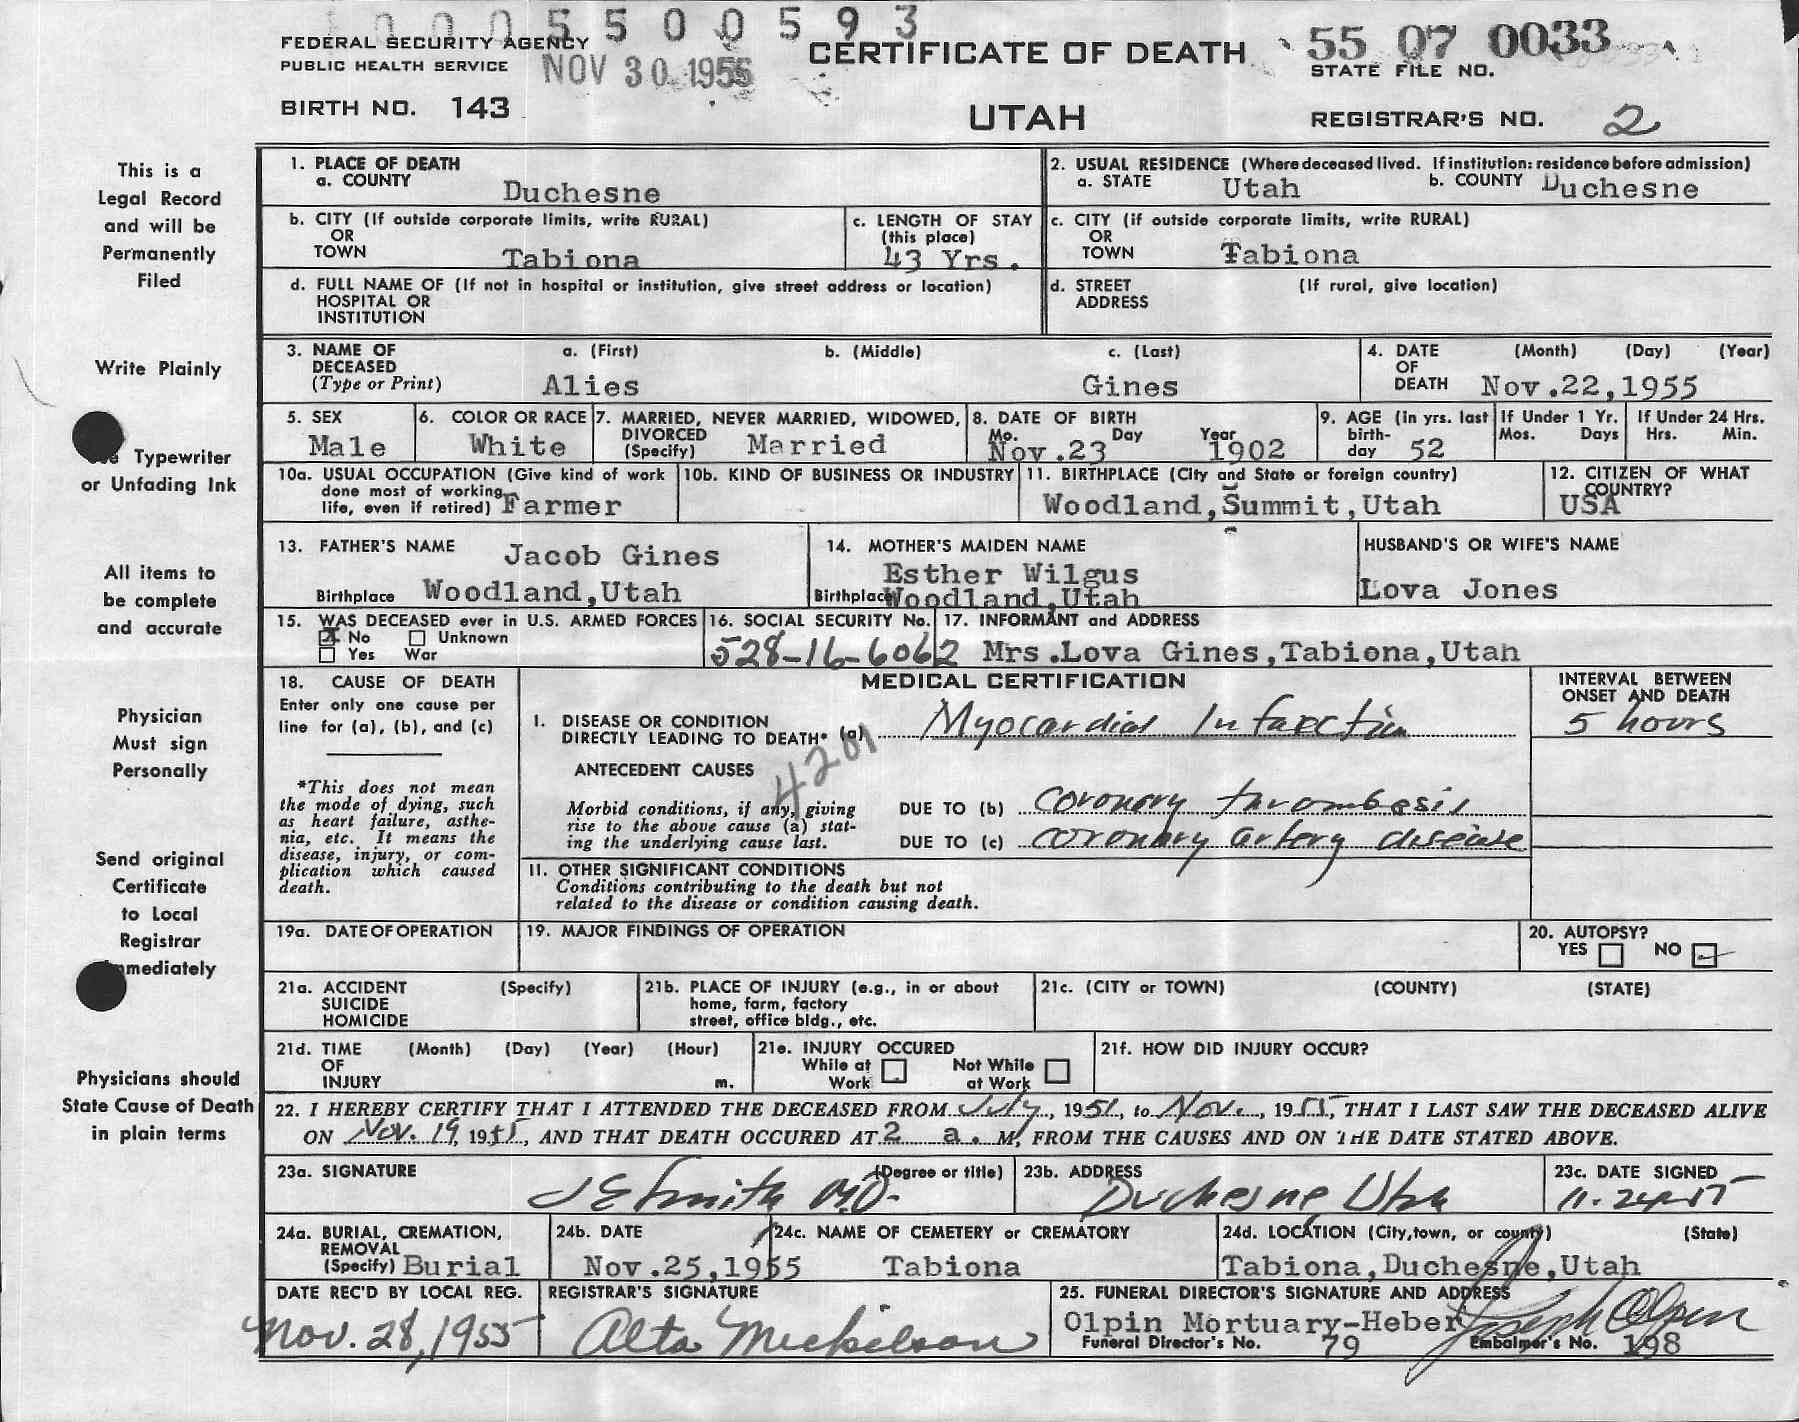 0005500593
FEDERAL SECURITY AGENCY
PUBLIC HEALTH SERVICE
NOV 30 1955
CERTIFICATE OF DEATH
55 07 0033
STATE FILE NO.
BIRTH NO. 143
UTAH
REGISTRAR'S NO. 2
This is a
Legal Record
and will be
Permanently
Filed
Write Plainly
Typewriter
or Unfading Ink
All items to
be complete
and accurate
Physician
Must sign
Personally
Send original
Certificate
to Local
Registrar
mmediately
Physicians should
State Cause of Death
in plain terms
1. PLACE OF DEATH
a. COUNTY Duchesne
2. USUAL RESIDENCE (Where deceased lived. If institution: residence before admission)
a. STATE Utah b. COUNTY Duchesne
b. CITY (If outside corporate limits, write RURAL)
OR
TOWN Tabiona
c. LENGTH OF STAY
(this place)
43 Yrs.
c. CITY (if outside corporate limits, write RURAL)
OR
TOWN Tabiona
d. FULL NAME OF (If not in hospital or institution, give street address or location)
HOSPITAL OR
INSTITUTION
d. STREET (If rural, give location)
ADDRESS
3. NAME OF a. (First) b. (Middle) c. (Last)
DECEASED
(Type or Print) Alies Gines
4. DATE (Month) (Day) (Year)
OF
DEATH Nov.22,1955
5. SEX
Male
6. COLOR OR RACE
White
7. MARRIED, NEVER MARRIED, WIDOWED,
DIVORCED
(Specify) Married
8. DATE OF BIRTH
Mo. Day Year
Nov.23 1902
9. AGE (in yrs. last
birth-
day 52
If Under 1 Yr.
Mos. Days
If Under 24 Hrs.
Hrs. Min.
10a. USUAL OCCUPATION (Give kind of work
done most of working
life, even if retired) Farmer
10b. KIND OF BUSINESS OR INDUSTRY
11. BIRTHPLACE (City and State or foreign country)
Woodland,Summit,Utah
12. CITIZEN OF WHAT
COUNTRY?
USA
13. FATHER'S NAME Jacob Gines
Birthplace Woodland,Utah
14. MOTHER'S MAIDEN NAME
Esther Wilgus
Birthplace Woodland,Utah
HUSBAND'S OR WIFE'S NAME
Lova Jones
15. WAS DECEASED ever in U.S. ARMED FORCES
No Unknown
Yes War
16. SOCIAL SECURITY No.
528-16-6062
17. INFORMANT and ADDRESS
Mrs.Lova Gines,Tabiona,Utah
18. CAUSE OF DEATH
Enter only one cause per
line for (a), (b), and (c)
*This does not mean
the mode of dying, such
as heart failure, asthe-
nia, etc. It means the
disease, injury, or com-
plication which caused
death.
MEDICAL CERTIFICATION
INTERVAL BETWEEN
ONSET AND DEATH
I. DISEASE OR CONDITION
DIRECTLY LEADING TO DEATH* (a) Myocardial Infarction
5 hours
4201
ANTECEDENT CAUSES
Morbid conditions, if any, giving
rise to the above cause (a) stat-
ing the underlying cause last.
DUE TO (b) coronary thrombosis
DUE TO (c) coronary artery disease
11. OTHER SIGNIFICANT CONDITIONS
Conditions contributing to the death but not
related to the disease or condition causing death.
19a. DATE OF OPERATION
19. MAJOR FINDINGS OF OPERATION
20. AUTOPSY?
YES NO
21a. ACCIDENT (Specify)
SUICIDE
HOMICIDE
21b. PLACE OF INJURY (e.g., in or about
home, farm, factory
street, office bldg., etc.
21c. (CITY or TOWN) (COUNTY) (STATE)
21d. TIME (Month) (Day) (Year) (Hour)
OF
INJURY m.
21e. INJURY OCCURED
While at Not While
Work at Work
21f. HOW DID INJURY OCCUR?
22. I HEREBY CERTIFY THAT I ATTENDED THE DECEASED FROM July, 1951, to Nov., 1955, THAT I LAST SAW THE DECEASED ALIVE
ON Nov. 19, 1955, AND THAT DEATH OCCURED AT 2 a. M, FROM THE CAUSES AND ON THE DATE STATED ABOVE.
23a. SIGNATURE (Degree or title)
M.D.
23b. ADDRESS
Duchesne Utah
23c. DATE SIGNED
11-24-55
24a. BURIAL, CREMATION,
REMOVAL
(Specify) Burial
24b. DATE
Nov.25,1955
24c. NAME OF CEMETERY or CREMATORY
Tabiona
24d. LOCATION (City, town, or county) (State)
Tabiona,Duchesne,Utah
DATE REC'D BY LOCAL REG.
Nov. 28, 1955
REGISTRAR'S SIGNATURE
Alta Mickelson
25. FUNERAL DIRECTOR'S SIGNATURE AND ADDRESS
Olpin Mortuary-Heber Joseph Olpin
Funeral Director's No. 79 Embalmer's No. 198